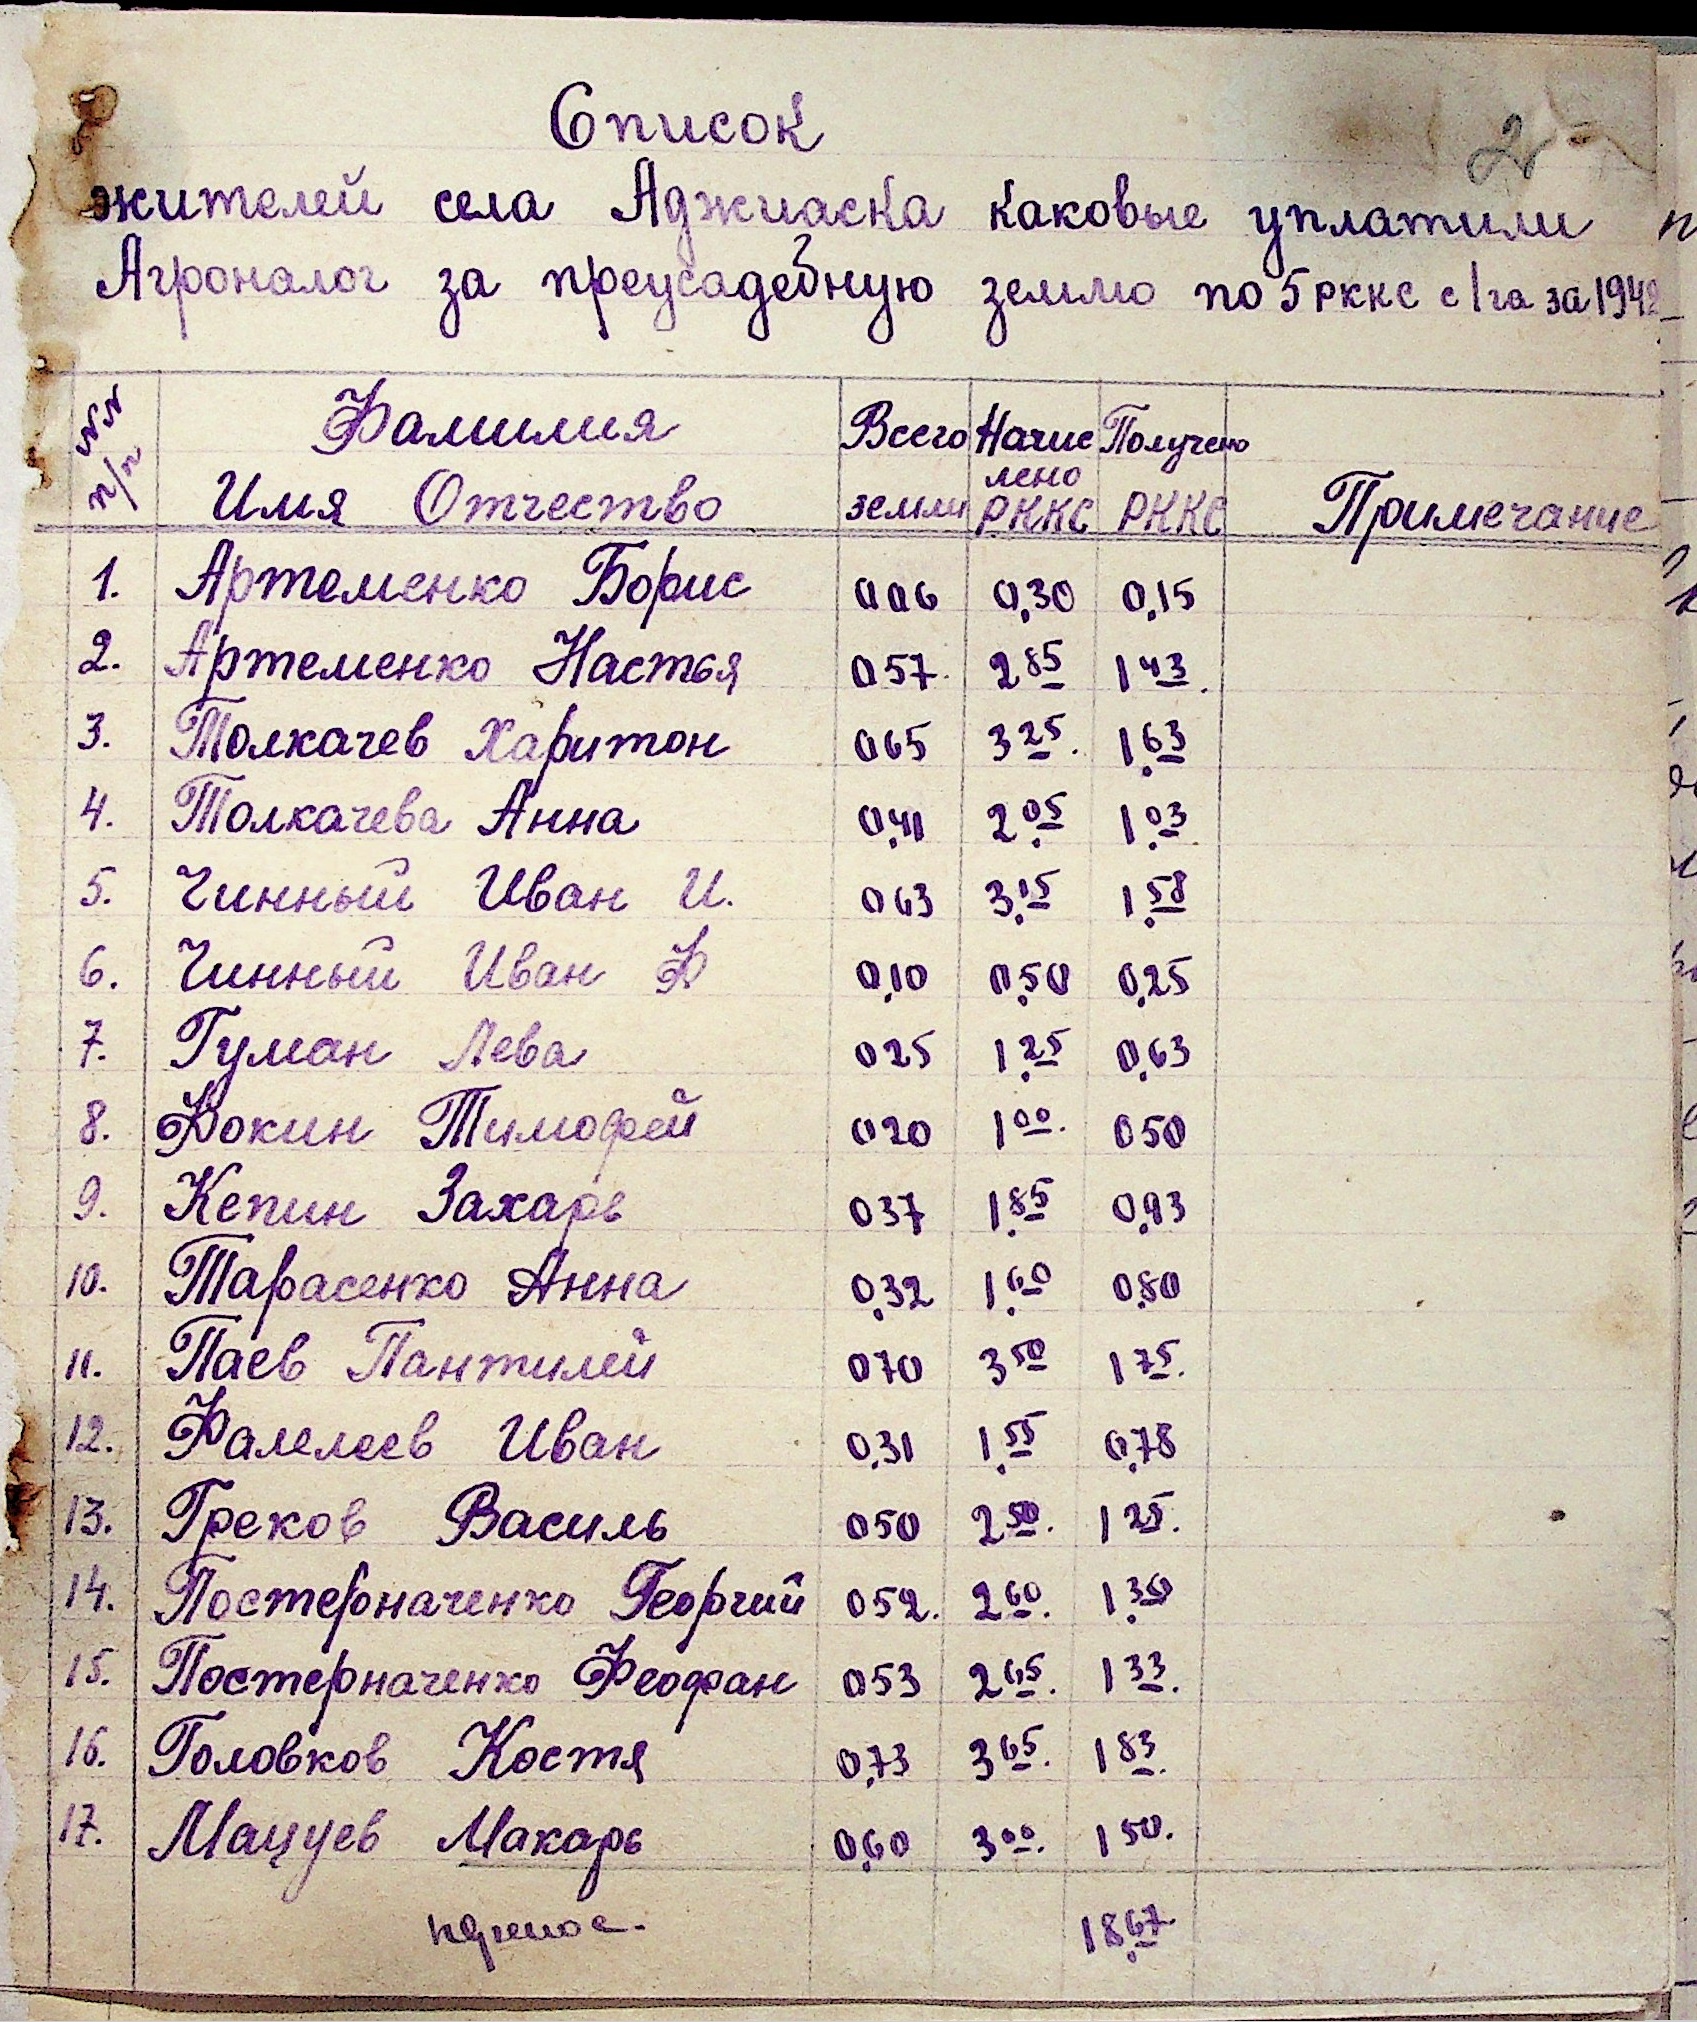 2
Список
жителей села Аджиаска каковые уплатили
Агроналог за преусадебную землю по 5 РККС с 1 га за 1942
№№ п/п Фамилия Имя Отчество Всего земли Начислено РККС Получено РККС Примечание
1. Артеменко Борис 0 06 0,30 0,15
2. Артеменко Настья 0 57 2 85 1 43
3. Толкачев Харитон 0 65 3 25 1,63
4. Толкачева Анна 0,41 2,05 1,03
5. Чинный Иван И. 0 63 3,15 1,58
6. Чинный Иван Ф 0,10 0,50 0,25
7. Гуман Лева 0 25 1,25 0,63
8. Фокин Тимофей 0 20 1 00 0 50
9. Кепин Захарь 0 37 1,85 0,93
10. Тарасенко Анна 0,32 1,60 0,80
11. Паев Пантилей 0 70 3 50 1 75
12. Фалелеев Иван 0,31 1,55 0,78
13. Греков Василь 0 50 2 50 1 25
14. Постерначенко Георгий 0 52 2 60 1,30
15. Постерначенко Феофан 0 53 2 65 1 33
16. Головков Костя 0,73 3 65 1 83
17. Мацуев Макарь 0,60 3 00 1 50
18,67